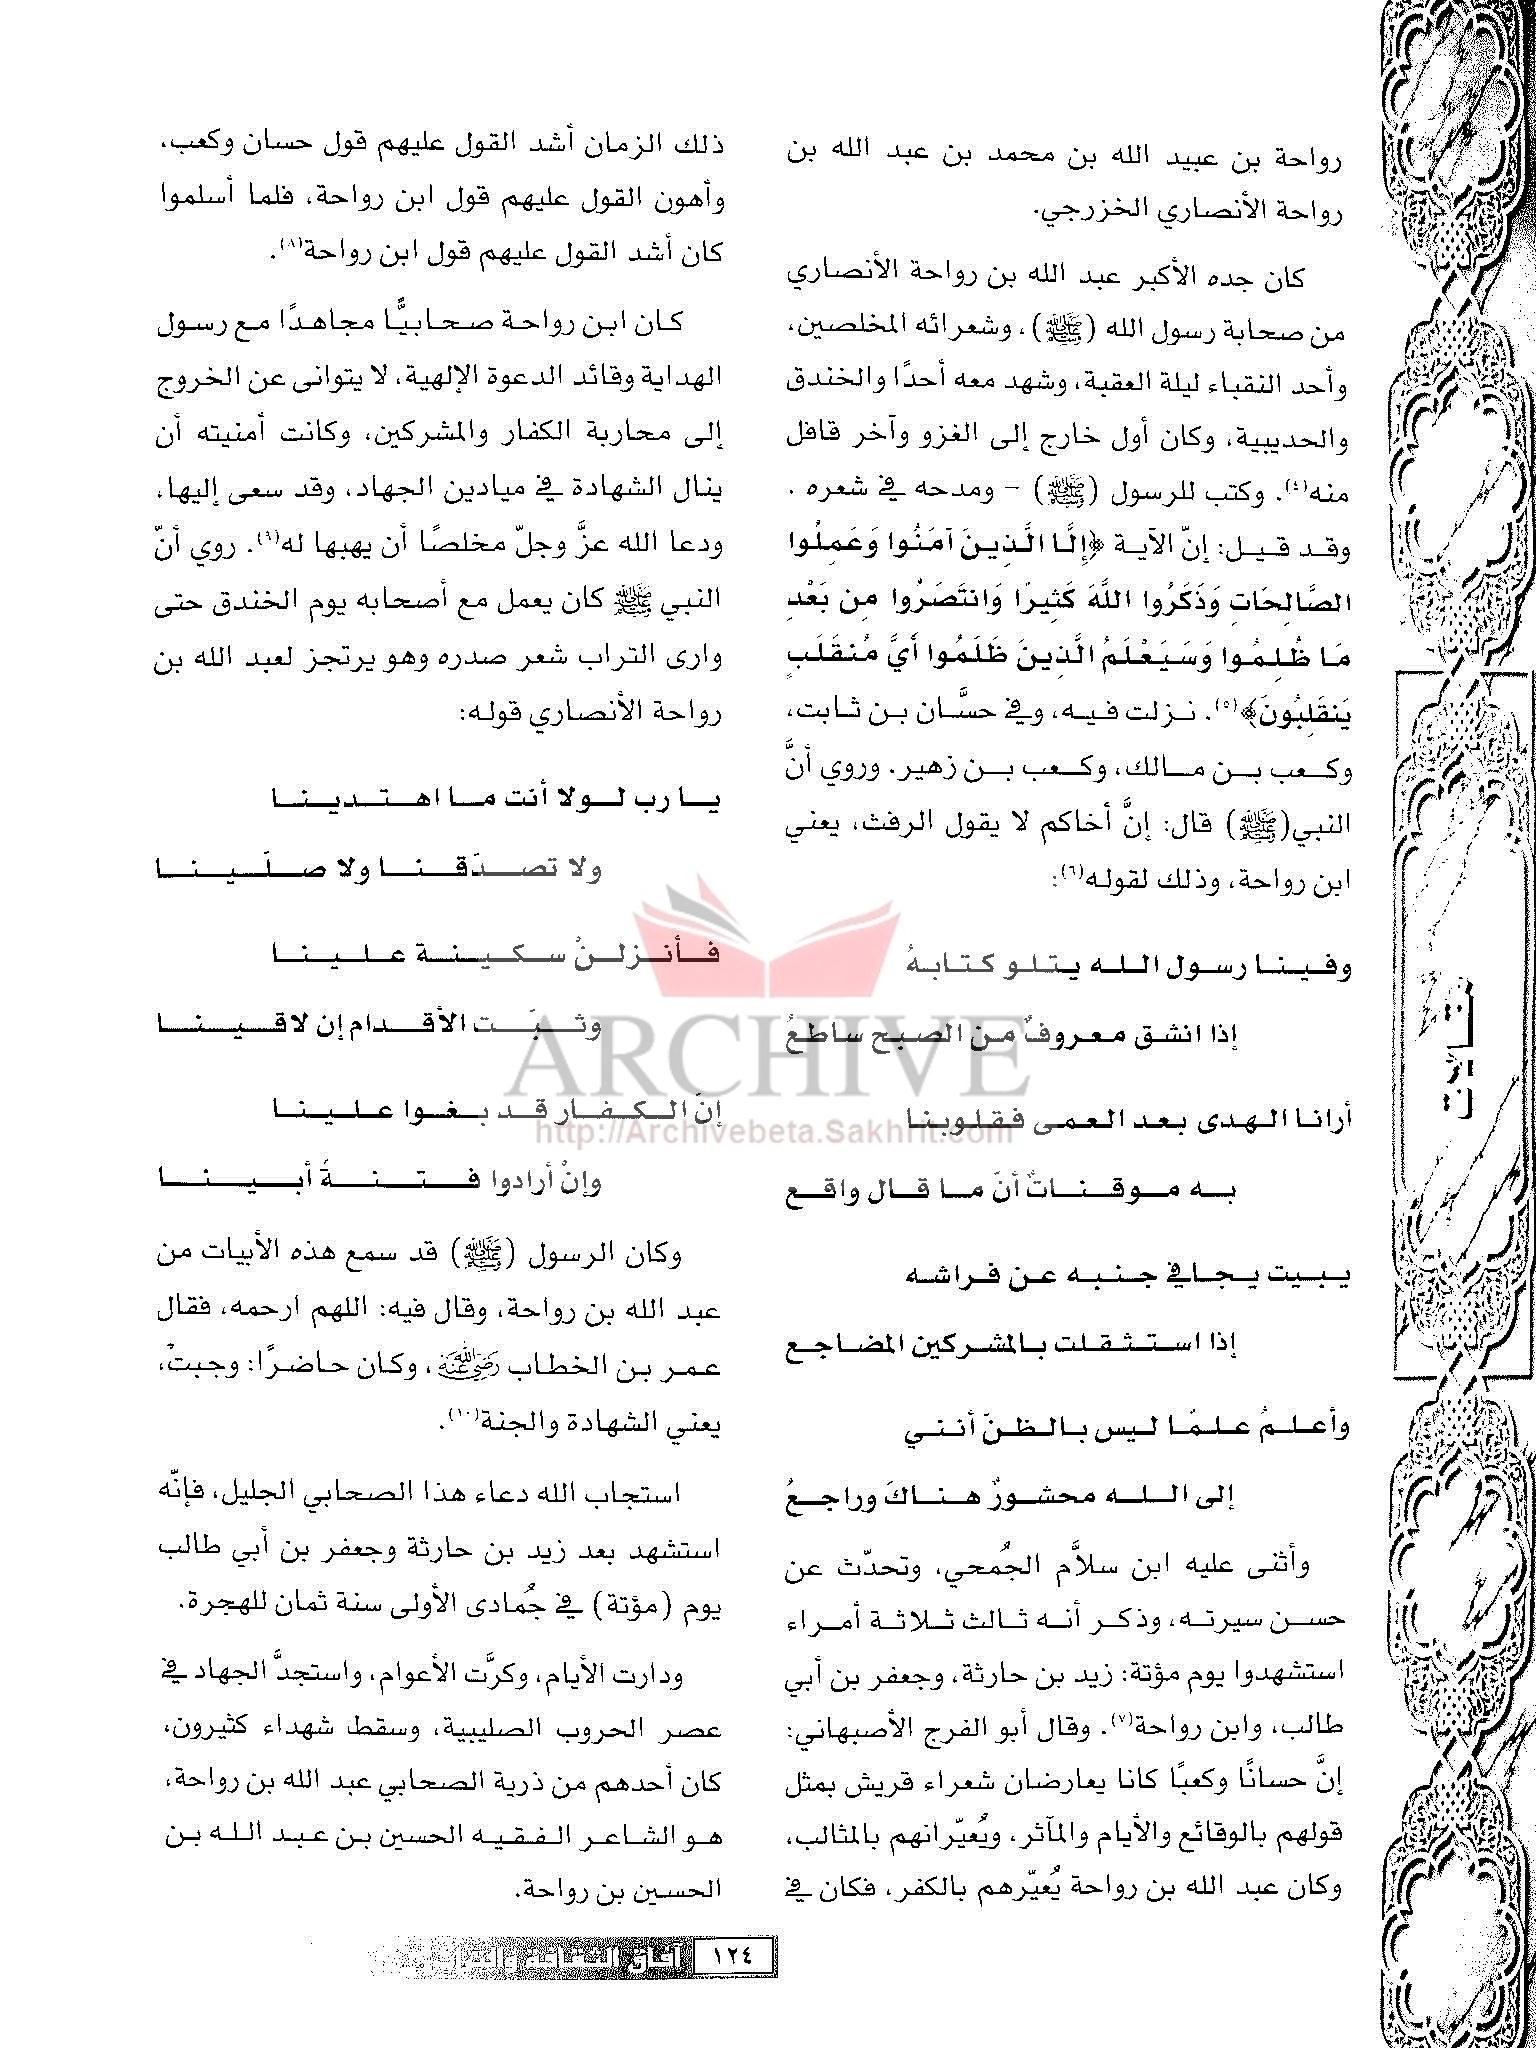 رواحة بن عبيد الله بن محمد بن عبد الله بن
رواحة الأنصاري الخزرجي.
كان جده الأكبر عبد الله بن رواحة الأنصاري
من صحابة رسول الله (ﷺ)، وشعرائه المخلصين،
وأحد النقباء ليلة العقبة، وشهد معه أحدًا والخندق
والحديبية، وكان أول خارج إلى الغزو وآخر قافل
منه(٤). وكتب للرسول (ﷺ) - ومدحه في شعره .
وقد قيل: إنّ الآية ﴿إِلَّا الَّذِينَ آمَنُوا وَعَمِلُوا
الصَّالِحَاتِ وَذَكَرُوا اللَّهَ كَثِيرًا وَانْتَصَرُوا مِن بَعْدِ
مَا ظُلِمُوا وَسَيَعْلَمُ الَّذِينَ ظَلَمُوا أَيَّ مُنقَلَبٍ
يَنقَلِبُونَ﴾(٥). نزلت فيه، وفي حسَّان بن ثابت،
وكعب بن مالك، وكعب بن زهير. وروي أنَّ
النبي(ﷺ) قال: إنَّ أخاكم لا يقول الرفث، يعني
ابن رواحة، وذلك لقوله(٦):
وفينا رسول الله يتلو كتابهُ
إذا انشق معروفٌ من الصبح ساطعُ
أرانا الهدى بعد العمى فقلوبنا
به موقناتٌ أنّ ما قال واقع
يبيت يجافي جنبه عن فراشه
إذا استثقلت بالمشركين المضاجع
وأعلمُ علمًا ليس بالظنّ أنني
إلى الله محشورٌ هناكَ وراجعُ
وأثنى عليه ابن سلاَّم الجُمحي، وتحدّث عن
حسن سيرته، وذكر أنه ثالث ثلاثة أمراء
استشهدوا يوم مؤتة: زيد بن حارثة، وجعفر بن أبي
طالب، وابن رواحة(٧). وقال أبو الفرج الأصبهاني:
إنَّ حسانًا وكعبًا كانا يعارضان شعراء قريش بمثل
قولهم بالوقائع والأيام والمآثر، ويُعيّرانهم بالمثالب،
وكان عبد الله بن رواحة يُعيّرهم بالكفر، فكان في
ذلك الزمان أشد القول عليهم قول حسان وكعب،
وأهون القول عليهم قول ابن رواحة، فلما أسلموا
كان أشد القول عليهم قول ابن رواحة(٨).
كان ابن رواحة صحابيًّا مجاهدًا مع رسول
الهداية وقائد الدعوة الإلهية، لا يتوانى عن الخروج
إلى محاربة الكفار والمشركين، وكانت أمنيته أن
ينال الشهادة في ميادين الجهاد، وقد سعى إليها،
ودعا الله عزَّ وجلّ مخلصًا أن يهبها له(٩). روي أنّ
النبي ﷺ كان يعمل مع أصحابه يوم الخندق حتى
وارى التراب شعر صدره وهو يرتجز لعبد الله بن
رواحة الأنصاري قوله:
يا رب لولا أنت ما اهتدينا
ولا تصدّقنا ولا صلّينا
فأنزلنْ سكينة علينا
وثبّت الأقدام إن لاقينا
إنّ الكفار قد بغوا علينا
وإنْ أرادوا فتنةً أبينا
وكان الرسول (ﷺ) قد سمع هذه الأبيات من
عبد الله بن رواحة، وقال فيه: اللهم ارحمه، فقال
عمر بن الخطاب رضي الله عنه، وكان حاضرًا: وجبتْ،
يعني الشهادة والجنة(١٠).
استجاب الله دعاء هذا الصحابي الجليل، فإنّه
استشهد بعد زيد بن حارثة وجعفر بن أبي طالب
يوم (مؤتة) في جُمادى الأولى سنة ثمان للهجرة.
ودارت الأيام، وكرَّت الأعوام، واستجدَّ الجهاد في
عصر الحروب الصليبية، وسقط شهداء كثيرون،
كان أحدهم من ذرية الصحابي عبد الله بن رواحة،
هو الشاعر الفقيه الحسين بن عبد الله بن
الحسين بن رواحة.
مقالات
ARCHIVE
http://Archivebeta.Sakhrit.com
١٢٤ آفاق الثقافة والتراث